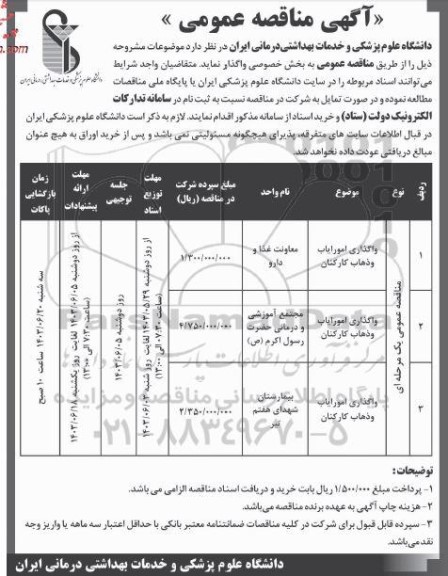 «آگهی مناقصه عمومی »
دانشگاه علوم پزشکی و خدمات بهداشتی درمانی ایران
دانشگاه علوم پزشکی و خدمات بهداشتی درمانی ایران در نظر دارد موضوعات مشروحه
ذیل را از طریق مناقصه عمومی به بخش خصوصی واگذار نماید. متقاضیان واجد شرایط
می‌توانند اسناد مربوطه را در سایت دانشگاه علوم پزشکی ایران یا پایگاه ملی مناقصات
مطالعه نموده و در صورت تمایل به شرکت در مناقصه نسبت به ثبت نام در سامانه تدارکات
الکترونیک دولت (ستاد) و خرید اسناد از سامانه مذکور اقدام نمایند. لازم به ذکر است دانشگاه علوم پزشکی ایران
در قبال اطلاعات سایت های متفرقه، پذیرای هیچگونه مسئولیتی نمی باشد و پس از خرید اوراق به هیچ عنوان
مبالغ دریافتی عودت داده نخواهد شد.
ردیف
نوع
موضوع
نام واحد
مبلغ سپرده شرکت
در مناقصه (ریال)
مهلت
توزیع
اسناد
جلسه
توجیهی
مهلت
ارائه
پیشنهادات
زمان
بازگشایی
پاکات
۱
واگذاری امور ایاب
وذهاب کارکنان
معاونت غذا و
دارو
۱/۳۰۰/۰۰۰/۰۰۰
۲
واگذاری امور ایاب
وذهاب کارکنان
مجتمع آموزشی
و درمانی حضرت
رسول اکرم (ص)
۴/۷۵۰/۰۰۰/۰۰۰
۳
واگذاری امور ایاب
وذهاب کارکنان
بیمارستان
شهدای هفتم
تیر
۲/۳۵۰/۰۰۰/۰۰۰
مناقصه عمومی یک مرحله ای
از روز دوشنبه ۱۴۰۳/۰۵/۲۹ لغایت روز شنبه ۱۴۰۳/۰۶/۰۳
(ساعت ۰۷:۳۰ الی ۱۳:۰۰)
روز دوشنبه ۱۴۰۳/۰۶/۰۵
از روز دوشنبه ۱۴۰۳/۰۶/۰۵ لغایت روز یکشنبه ۱۴۰۳/۰۶/۱۸
(ساعت ۷:۳۰ الی ۱۳:۰۰)
سه شنبه ۱۴۰۳/۰۶/۲۰ ساعت ۱۰ صبح
۰۲۱-۸۸۳۴۹۶۷۰-۵
توضیحات:
۱- پرداخت مبلغ ۱/۵۰۰/۰۰۰ ریال بابت خرید و دریافت اسناد مناقصه الزامی می باشد.
۲- هزینه چاپ آگهی به عهده برنده مناقصه می‌باشد.
۳- سپرده قابل قبول برای شرکت در کلیه مناقصات ضمانتنامه معتبر بانکی با حداقل اعتبار سه ماهه یا واریز وجه
نقد می‌باشد.
دانشگاه علوم پزشکی و خدمات بهداشتی درمانی ایران